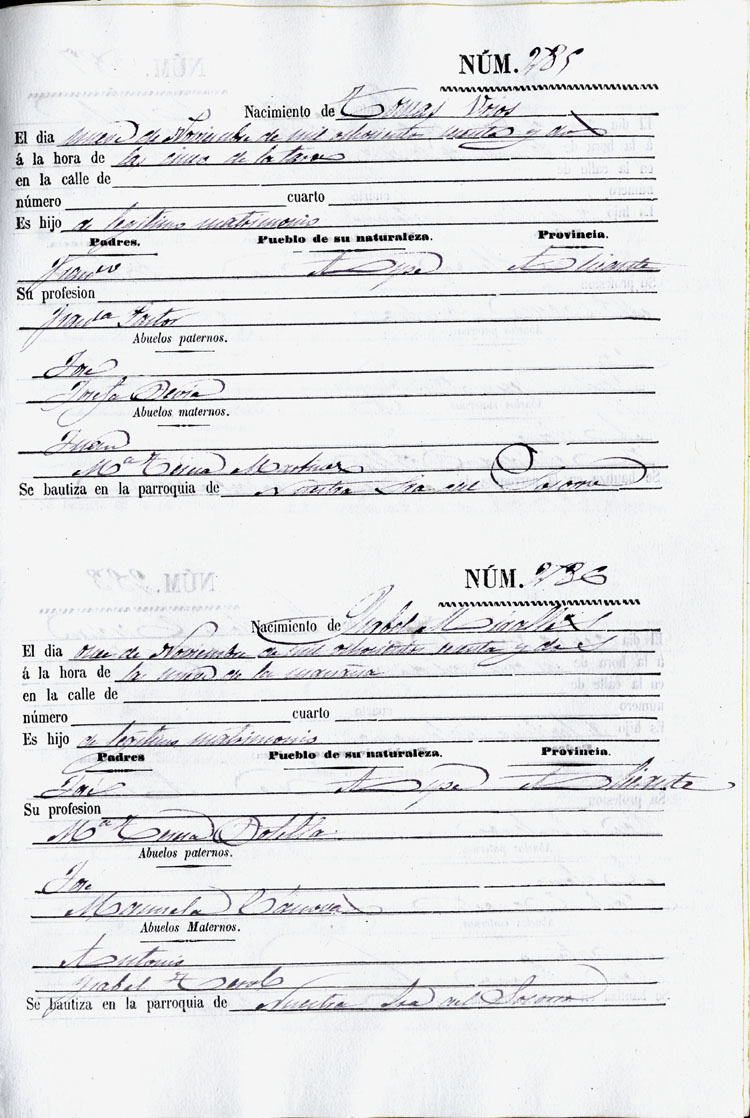 NÚM. 285
Nacimiento de Tomas
El dia nueve de Noviembre de mil ochocientos y dos
á la hora de las cinco de la tarde
en la calle de
número cuarto
Es hijo de legitimo matrimonio
Padres. Pueblo de su naturaleza. Provincia.
Franco Aspe Alicante
Su profesion
Franca Pastor
Abuelos paternos.
José
Josefa
Abuelos maternos.
Juan
Ma Teresa Martinez
Se bautiza en la parroquia de Nuestra Sra del Socorro
NÚM. 286
Nacimiento de Isabel
El dia once de Noviembre de mil ochocientos y dos
á la hora de la una de la mañana
en la calle de
número cuarto
Es hijo de legitimo matrimonio
Padres Pueblo de su naturaleza. Provincia.
José Aspe Alicante
Su profesion
Ma Teresa Botella
Abuelos paternos.
José
Manuela Cánovas
Abuelos Maternos.
Antonio
Isabel Terol
Se bautiza en la parroquia de Nuestra Sra del Socorro